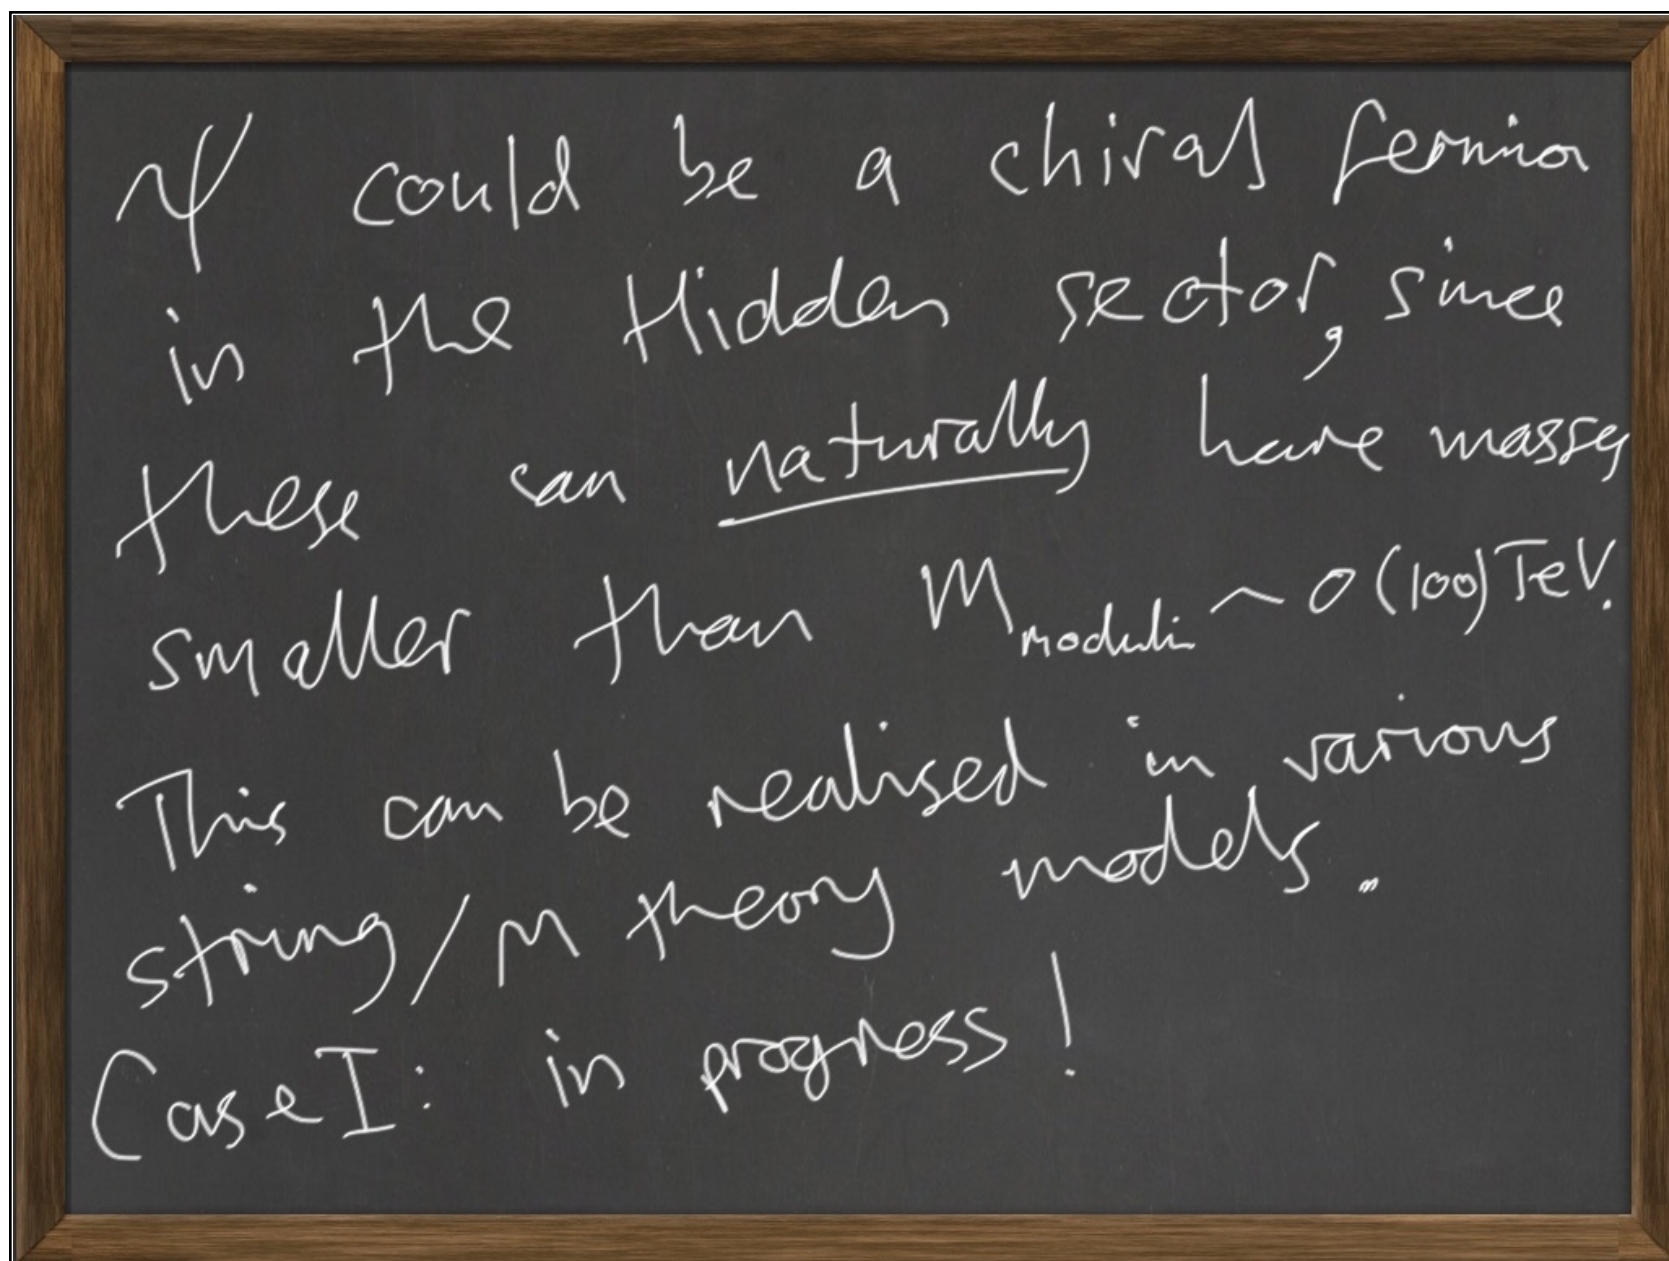 ψ could be a chiral fermion
in the Hidden sector, since
these can naturally have masses
smaller than M_moduli ~ O(100) TeV.
This can be realised in various
string/M theory models.
Case I: in progress!